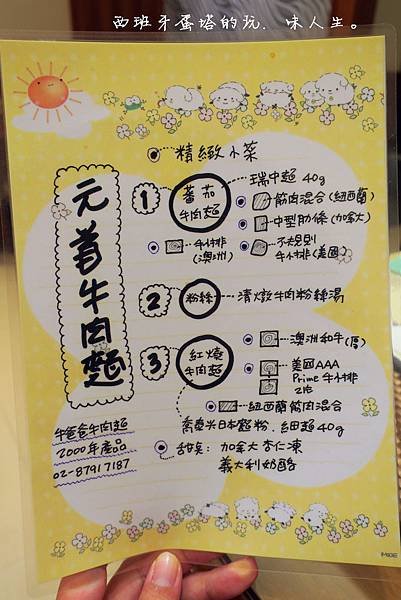 西班牙蛋塔的玩．味人生。
精緻小菜
元首牛肉麵
1 蕃茄牛肉麵
瑞中麵 40g
筋肉混合(紐西蘭)
中型肋條(加拿大)
牛小排(澳洲)
不規則牛小排(美國)
2 粉絲 清燉牛肉粉絲湯
3 紅燒牛肉麵
澳洲和牛(厚)
美國AAA
Prime 牛小排
2片
紐西蘭筋肉混合
喬麥米日本麵粉．細麵40g
甜點：加拿大杏仁凍
義大利奶酪
牛爸爸牛肉麵
2000年產品
02-87917187